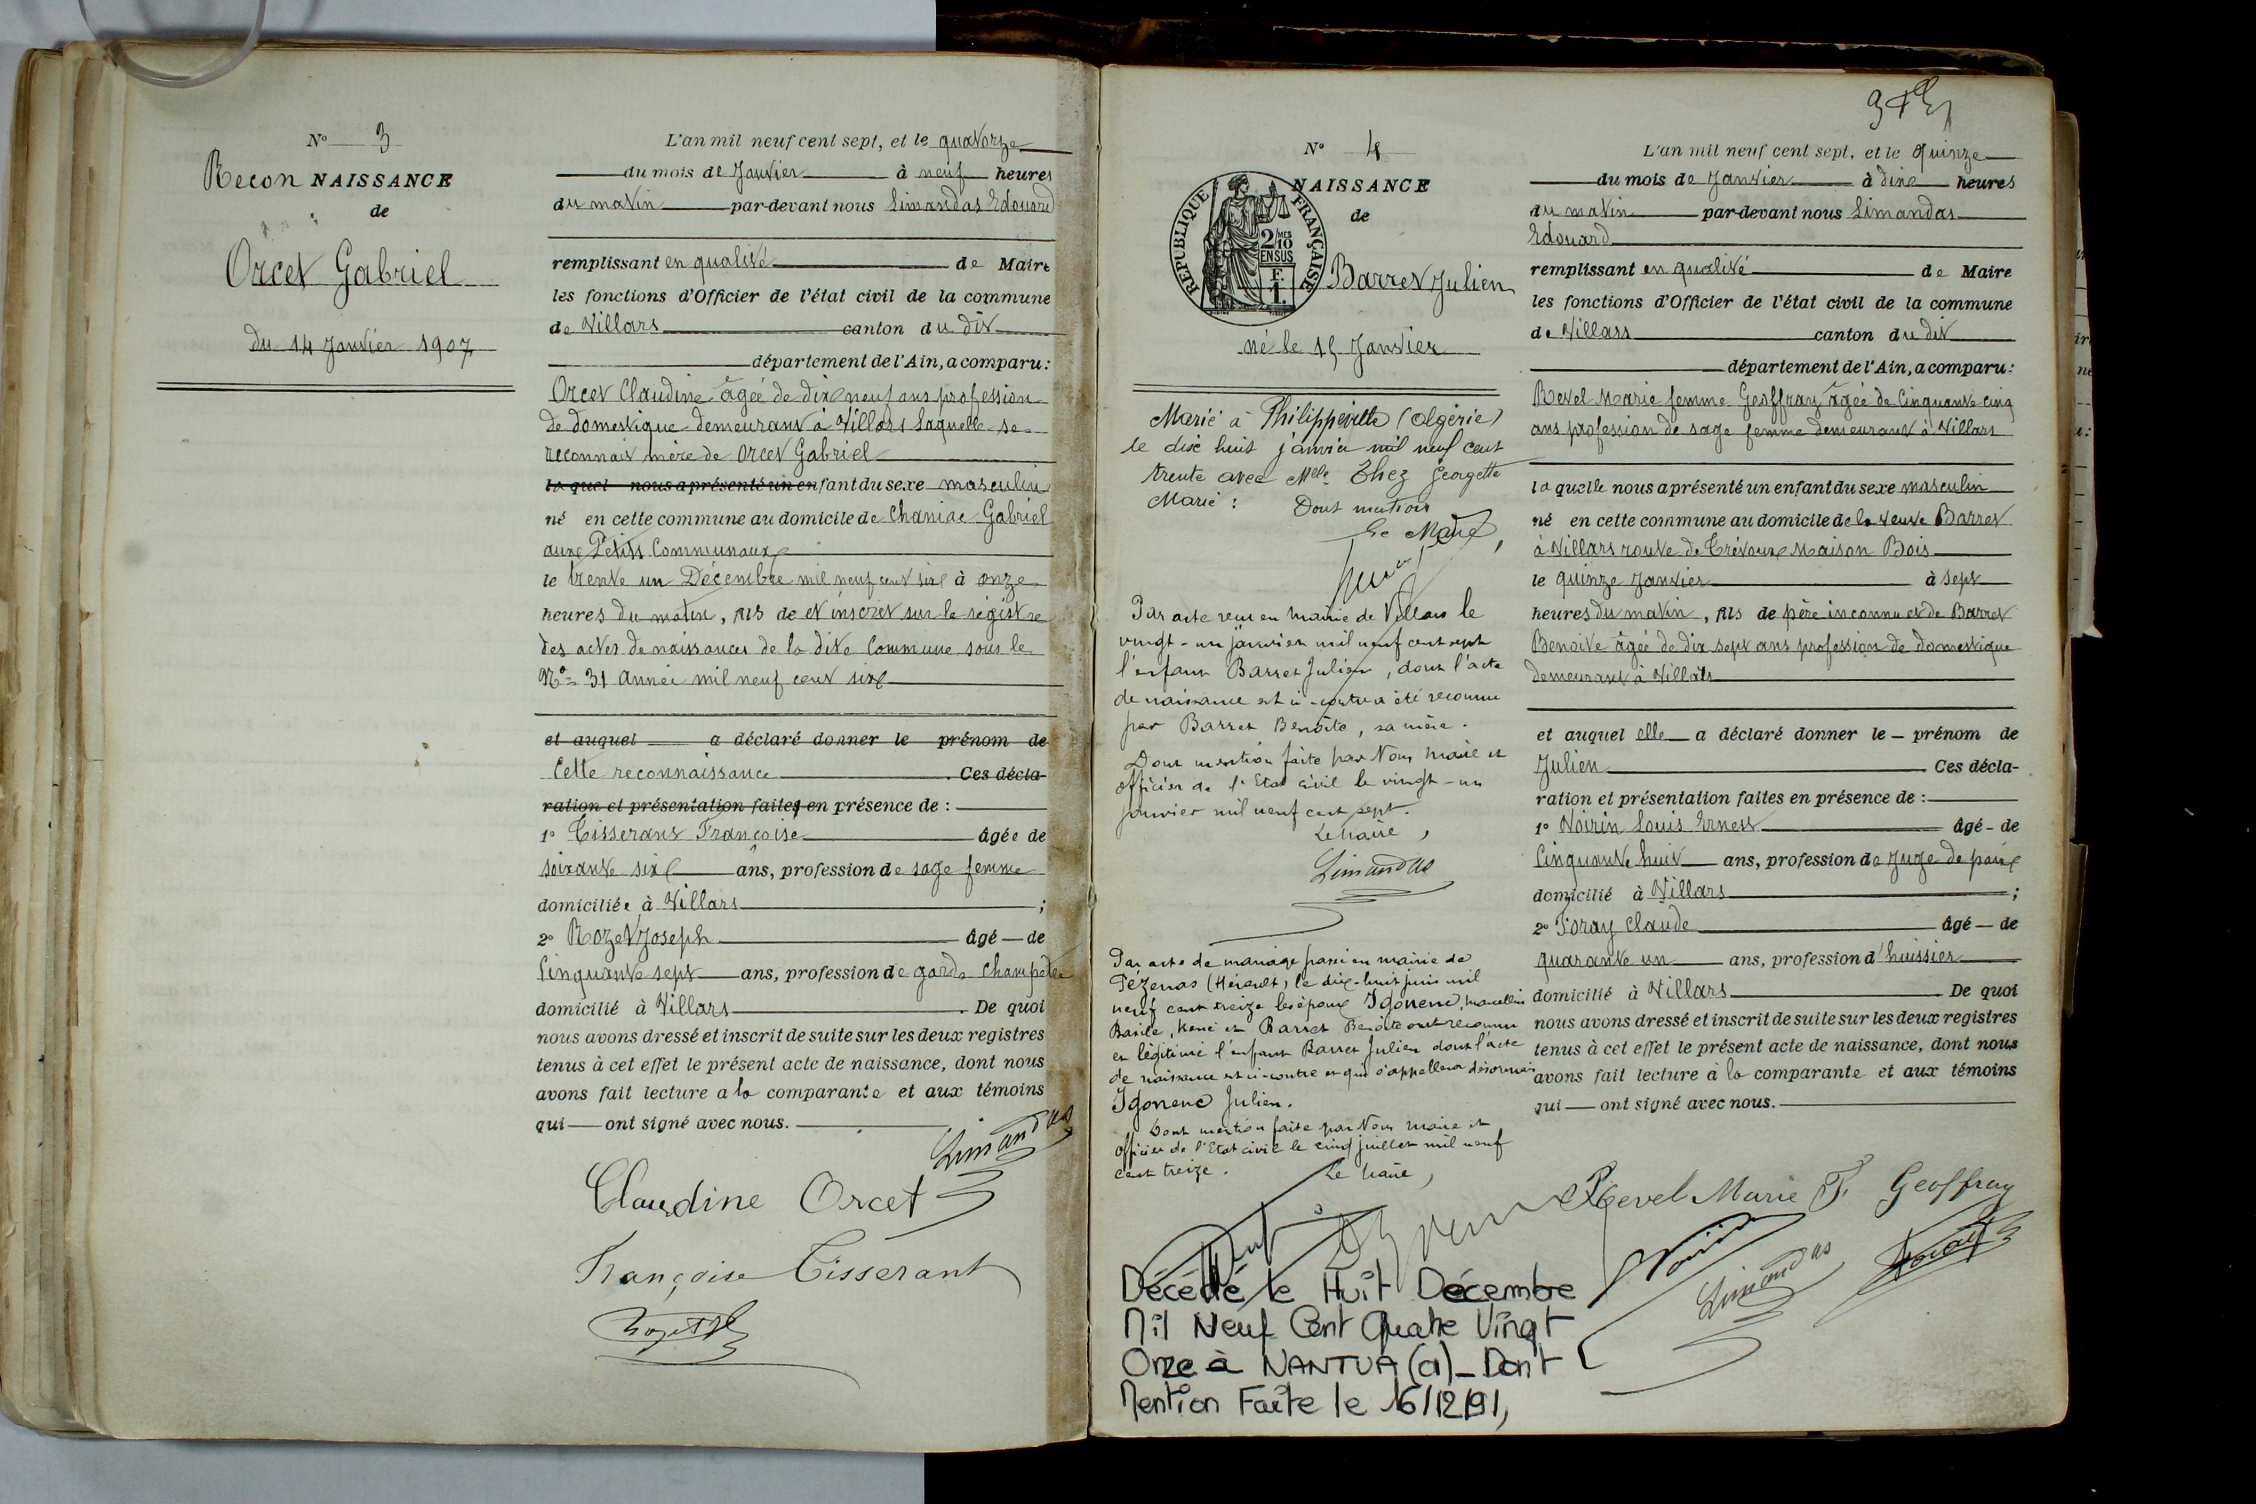 N° 3
Reconnaissance
de
Orcet Gabriel
du 14 Janvier 1907
L'an mil neuf cent sept, et le quatorze
du mois de Janvier à neuf heures
du matin par-devant nous Limandas Edouard
remplissant en qualité de Maire
les fonctions d'Officier de l'état civil de la commune
de Villars canton du dit
département de l'Ain, a comparu :
Orcet Claudine âgée de dix neuf ans profession
de domestique demeurant à Villars laquelle se
reconnait mère de Orcet Gabriel
laquel nous a présenté un enfant du sexe masculin
né en cette commune au domicile de Chaniac Gabriel
aux Petits Communaux
le trente un Décembre mil neuf cent six à onze
heures du matin, fils de et inscrit sur le régistre
des actes de naissances de la dite Commune sous le
N° 31 année mil neuf cent six
et auquel a déclaré donner le prénom de
Cette reconnaissance . Ces décla-
ration et présentation faites en présence de :
1° Tisserant Françoise âgée de
soixante six ans, profession de sage femme
domiciliée à Villars ;
2° Rozet Joseph âgé de
Cinquante sept ans, profession de garde champêtre
domicilié à Villars . De quoi
nous avons dressé et inscrit de suite sur les deux registres
tenus à cet effet le présent acte de naissance, dont nous
avons fait lecture a la comparante et aux témoins
qui ont signé avec nous.
Limandas
Claudine Orcet
Françoise Tisserant
Rozet
N° 4
NAISSANCE
de
RÉPUBLIQUE FRANÇAISE
2/10 MES
EN SUS
F.
1.
Barret Julien
né le 15 Janvier
Marié à Philippeville (Algérie)
le dix huit janvier mil neuf cent
trente avec Melle Thez Georgette
Marie : Dont mention
Le Maire,
Par acte reçu en mairie de Villars le
vingt-un janvier mil neuf cent sept
l'enfant Barret Julien, dont l'acte
de naissance est ci-contre a été reconnu
par Barret Benoite, sa mère.
Dont mention faite par Nous Maire et
officier de l'Etat civil le vingt-un
janvier mil neuf cent sept.
Le Maire,
Limandas
Par acte de mariage passé en mairie de
Pézenas (Hérault) le dix-huit juin mil
neuf cent treize les époux Igonenc, Marcellin
Basile, René et Barret Benoite ont reconnu
et légitimé l'enfant Barret Julien dont l'acte
de naissance est ci-contre et qui s'appellera désormais
Igonenc Julien.
Dont mention faite par Nous Maire et
officier de l'Etat civil le cinq juillet mil neuf
cent treize. Le Maire,
Décédé le Huit Décembre
Mil Neuf Cent Quatre Vingt
Onze à NANTUA (01)_Dont
Mention Faite le 16/12/91,
L'an mil neuf cent sept, et le quinze
du mois de Janvier à dix heures
du matin par-devant nous Limandas
Edouard
remplissant en qualité de Maire
les fonctions d'Officier de l'état civil de la commune
de Villars canton du dit
département de l'Ain, a comparu :
Revel Marie femme Geoffray âgée de Cinquante cinq
ans profession de sage femme demeurant à Villars
laquelle nous a présenté un enfant du sexe masculin
né en cette commune au domicile de la veuve Barret
à Villars route de Trévoux Maison Bois
le quinze Janvier à sept
heures du matin, fils de père inconnu et de Barret
Benoite âgée de dix sept ans profession de domestique
demeurant à Villars
et auquel elle a déclaré donner le prénom de
Julien . Ces décla-
ration et présentation faites en présence de :
1° Voirin Louis Ernest âgé de
Cinquante huit ans, profession de Juge de paix
domicilié à Villars ;
2° Foray Claude âgé de
quarante un ans, profession d'huissier
domicilié à Villars . De quoi
nous avons dressé et inscrit de suite sur les deux registres
tenus à cet effet le présent acte de naissance, dont nous
avons fait lecture à la comparante et aux témoins
qui ont signé avec nous.
Revel Marie F. Geoffray
Voirin
Limandas
Foray